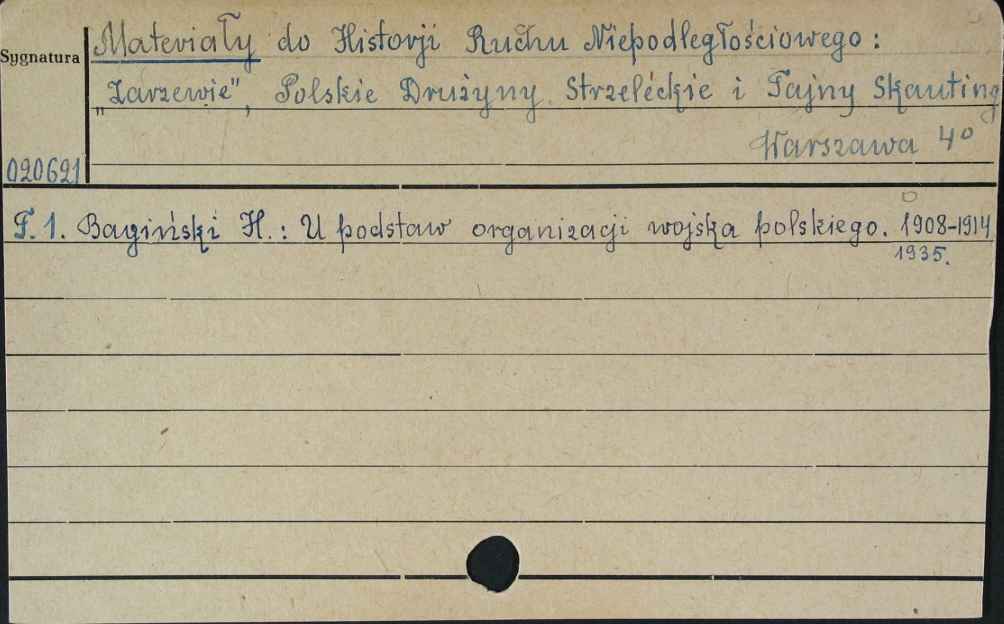 Materiały do Historji Ruchu Niepodległościowego:
Sygnatura
„Zarzewie", Polskie Drużyny Strzeleckie i Tajny Skauting
Warszawa 4°
020621
T. 1. Bagiński H.: U podstaw organizacji wojska polskiego. 1908-1914
1935.